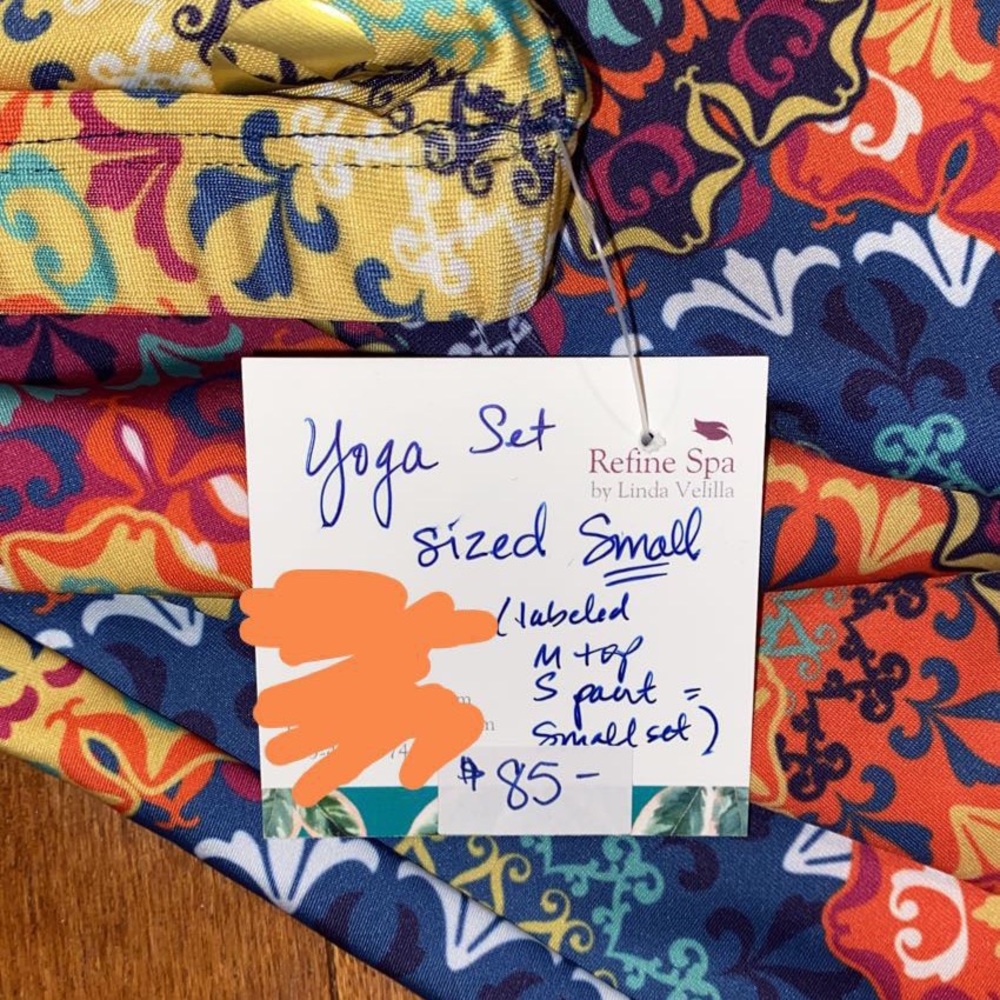 Yoga Set
Refine Spa
by Linda Velilla
sized Small
(labeled
M top
S pant =
Small set)
$85-